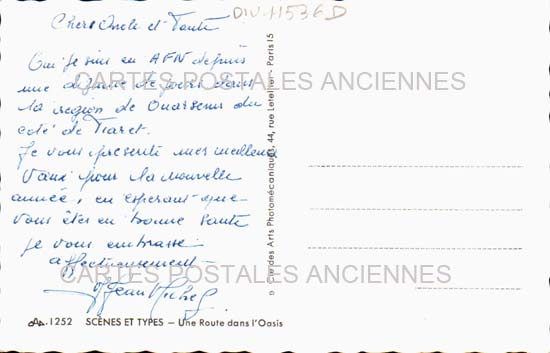 DIV-11536D
Chers Oncle et Tante
Oui je suis en AFN depuis
une dizaine de jours dans
la région de Ouarsenis du
coté de Tiaret.
Je vous présente mes meilleurs
Vœux pour la nouvelle
année, en espérant que
vous êtes en bonne santé
je vous embrasse
affectueusement
Jean Michel
CARTES POSTALES ANCIENNES
CARTES POSTALES ANCIENNES
Cie des Arts Photomécaniques, 44, rue Letellier - Paris 15
1252 SCÈNES ET TYPES — Une Route dans l'Oasis